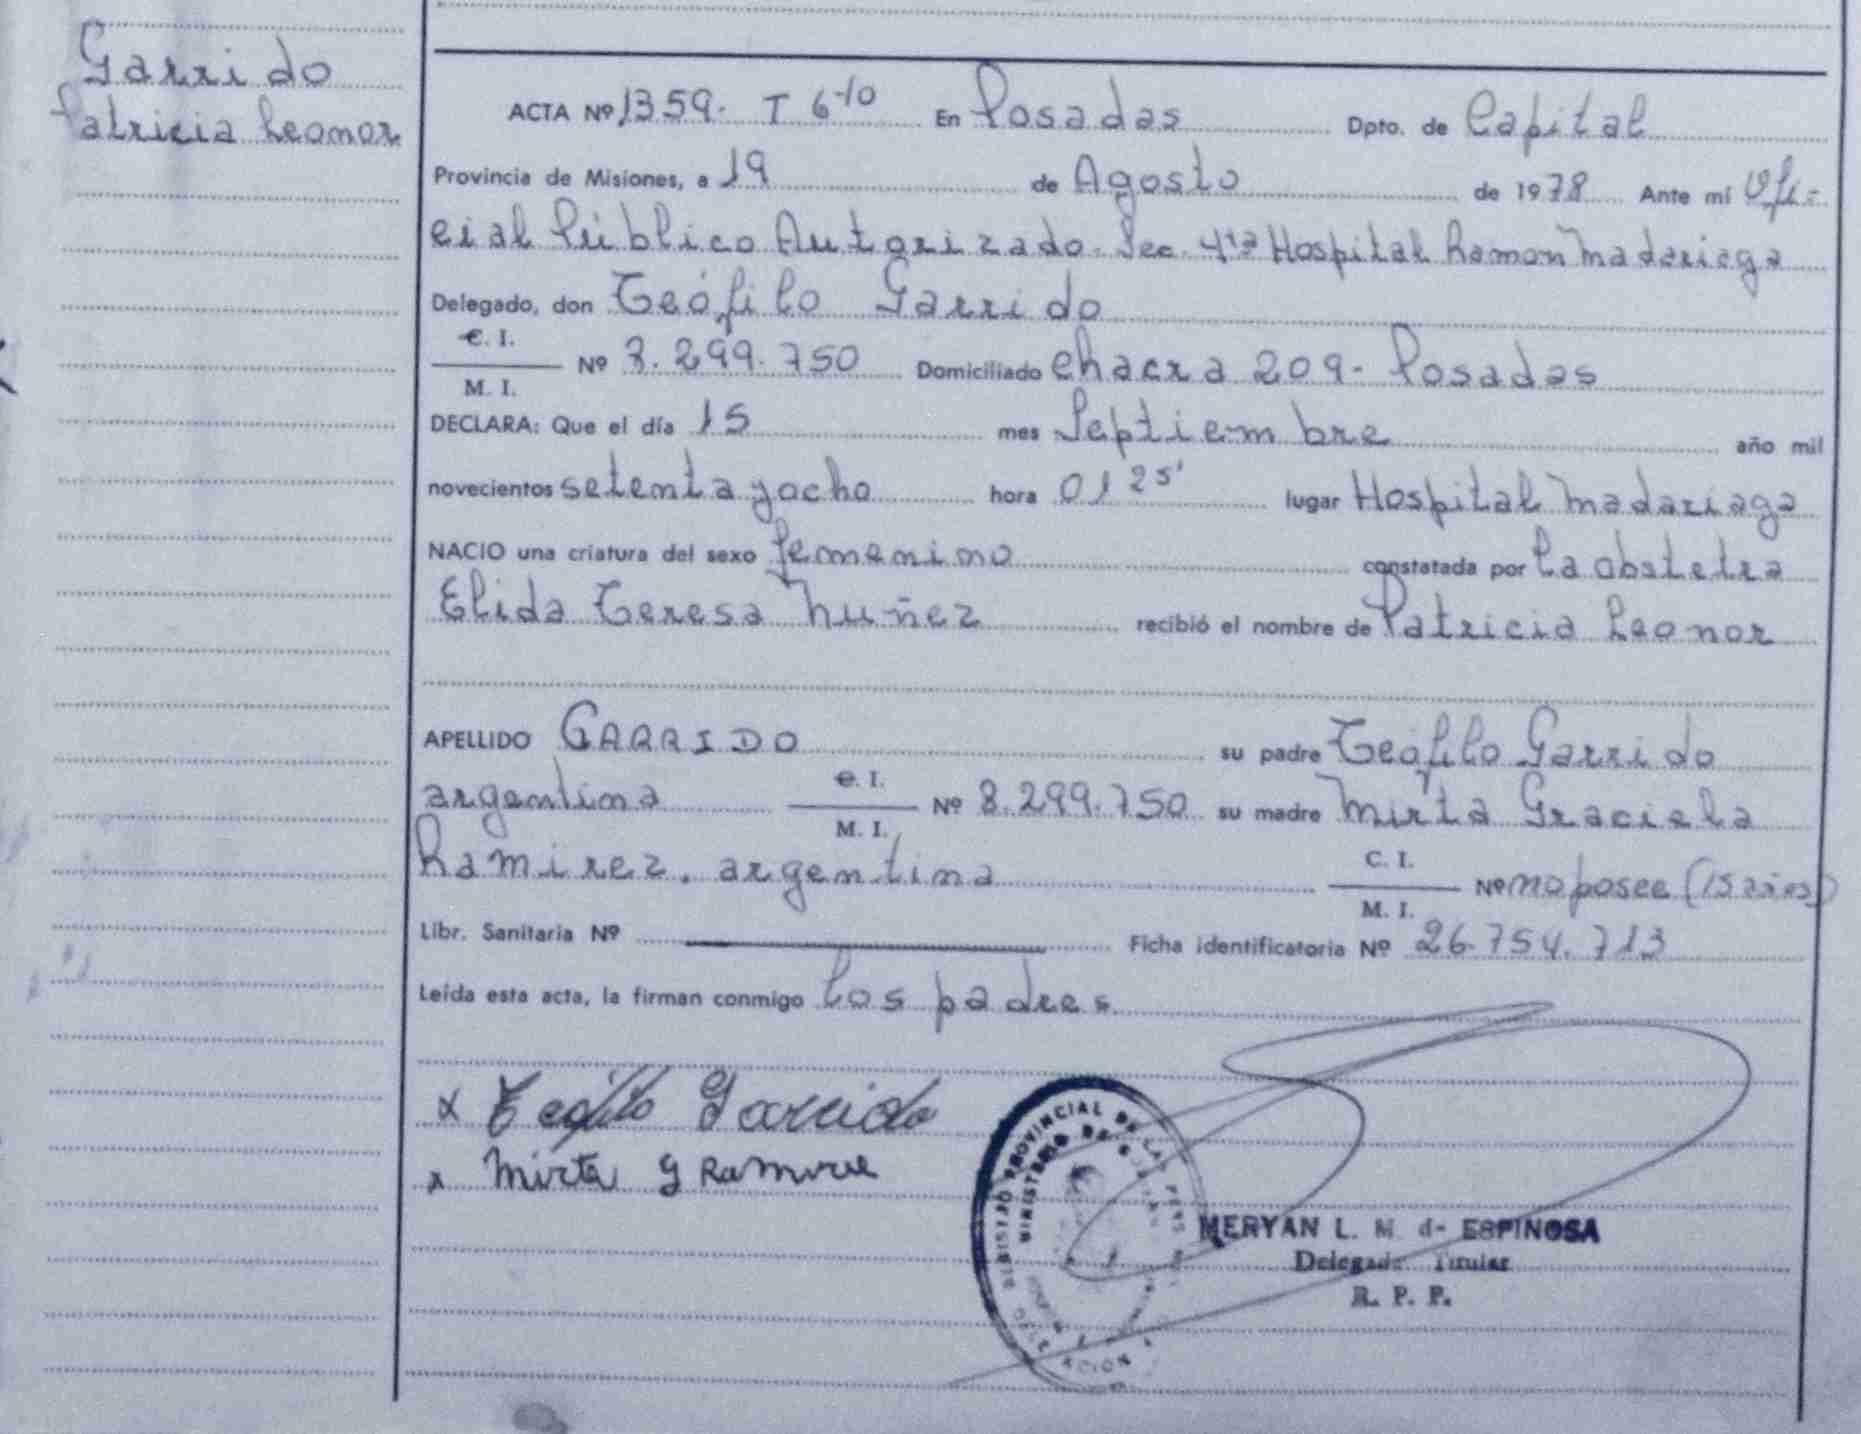 Garrido
Patricia Leonor
ACTA Nº 1359. T 6-10 En Posadas Dpto. de Capital
Provincia de Misiones, a 19 de Agosto de 1978 Ante mí Ofi-
cial Público Autorizado. Sec. 4ta Hospital Ramon Madariaga
Delegado, don Teófilo Garrido
C. I.
M. I. Nº 8.299.750 Domiciliado Chacra 209 - Posadas
DECLARA: Que el día 15 mes Septiembre año mil
novecientos setenta y ocho hora 01 25' lugar Hospital Madariaga
NACIO una criatura del sexo femenino constatada por La obstetra
Elida Teresa Nuñez recibió el nombre de Patricia Leonor
APELLIDO GARRIDO su padre Teófilo Garrido
argentina C. I.
M. I. Nº 8.299.750 su madre Mirta Graciela
Ramirez. argentina C. I.
M. I. Nº no posee (15 años)
Libr. Sanitaria Nº Ficha identificatoria Nº 26.754.713
Leída esta acta, la firman conmigo Los padres.
x Teofilo Garrido
x Mirta G Ramire
REGISTRO PROVINCIAL DE LAS PERS
MINISTERIO DE
MERYAN L. M. de ESPINOSA
Delegada Titular
R. P. P.